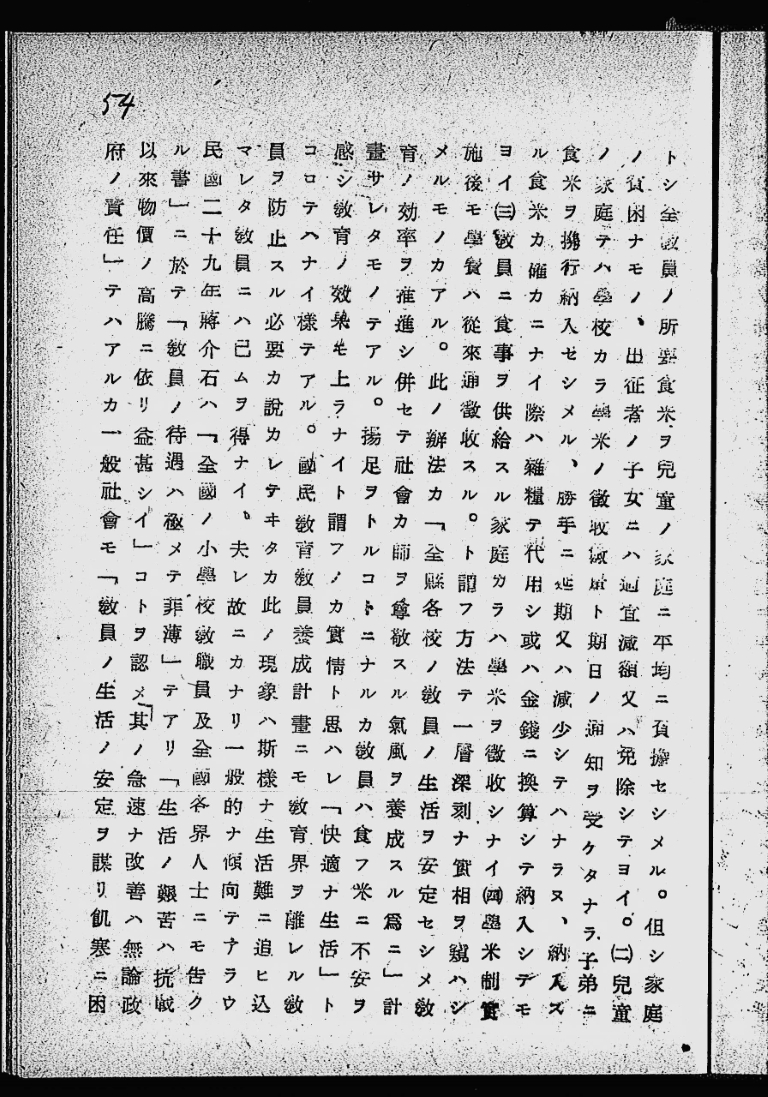 54
トシ全敎員ノ所要食米ヲ兒童ノ家庭ニ平均ニ負擔セシメル。但シ家庭
ノ貧困ナモノ、出征者ノ子女ニハ適宜減額又ハ免除シテヨイ。㈡兒童
ノ家庭テハ學校カラ學米ノ徵收數量ト期日ノ通知ヲ受クタナラ子弟ニ
食米ヲ携行納入セシメル、勝手ニ延期又ハ減少シテハナラヌ、納入ス
ル食米カ確カニナイ際ハ雜糧テ代用シ或ハ金錢ニ換算シテ納入シデモ
ヨイ㈢敎員ニ食事ヲ供給スル家庭カラハ學米ヲ徵收シナイ㈣學米制實
施後モ學費ハ從來通徵收スル。ト謂フ方法テ一層深刻ナ實相ヲ窺ハシ
メルモノカアル。此ノ辦法カ「全縣各校ノ敎員ノ生活ヲ安定セシメ敎
育ノ效率ヲ推進シ併セテ社會カ師ヲ尊敬スル氣風ヲ養成スル爲ニ」計
畫サレタモノテアル。揚足ヲトルコトニナルカ敎員ハ食フ米ニ不安ヲ
感シ敎育ノ效果モ上ラナイト謂フノカ實情ト思ハレ「快適ナ生活」ト
コロテハナイ樣テアル。國民敎育敎員養成計畫ニモ敎育界ヲ離レル敎
員ヲ防止スル必要カ說カレテヰタカ此ノ現象ハ斯樣ナ生活難ニ追ヒ込
マレタ敎員ニハ已ムヲ得ナイ、夫レ故ニカナリ一般的ナ傾向テアラウ
民國二十九年蔣介石ハ「全國ノ小學校敎職員及全國各界人士ニモ告ク
ル書」ニ於テ「敎員ノ待遇ハ極メテ菲薄」テアリ「生活ノ艱苦ハ抗戰
以來物價ノ高騰ニ依リ益甚シイ」コトヲ認メ「其ノ急速ナ改善ハ無論政
府ノ責任」テハアルカ一般社會モ「敎員ノ生活ノ安定ヲ謀リ飢寒ニ困